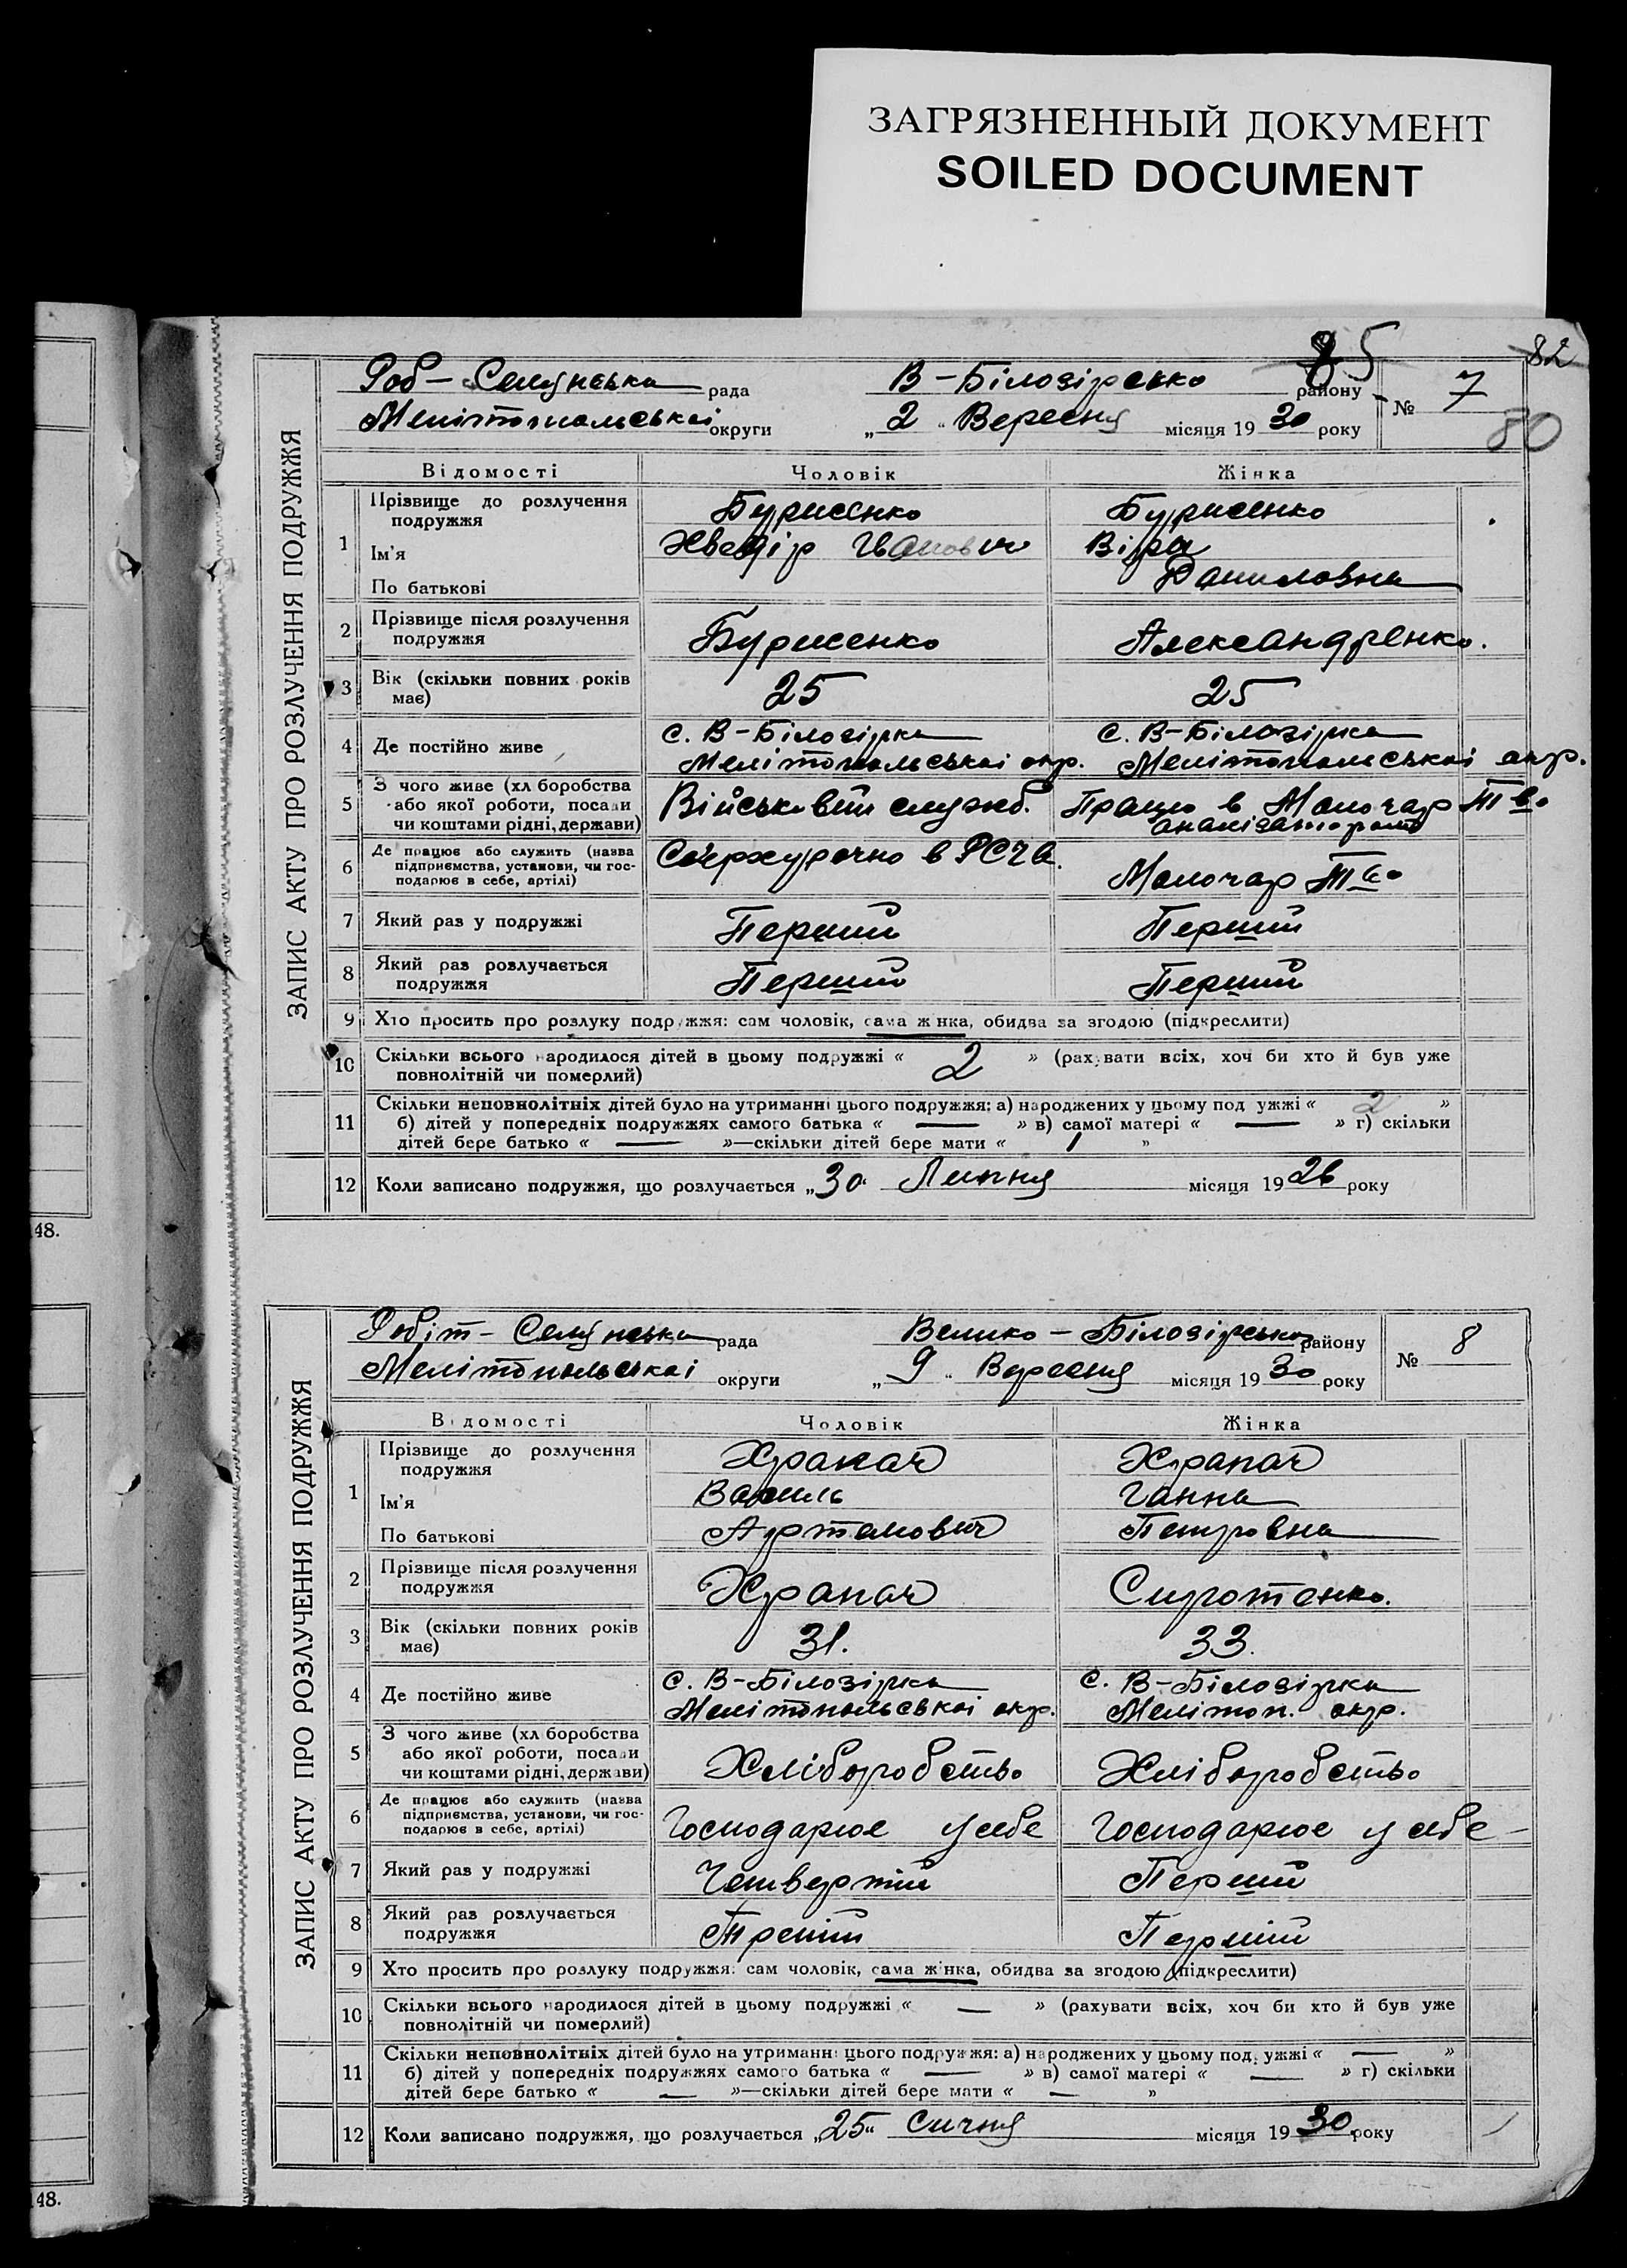 ЗАГРЯЗНЕННЫЙ ДОКУМЕНТ
SOILED DOCUMENT
85
82
80
ЗАПИС АКТУ ПРО РОЗЛУЧЕННЯ ПОДРУЖЖЯ
Роб-Селянська рада В-Білозірсько району № 7
Мелітопольської округи „2“ Вересня місяця 1930 року
Відомості Чоловік Жінка
1 Прізвище до розлучення подружжя Бурисенко Бурисенко
Ім'я Хведір Іванович Віра
По батькові Даниловна
2 Прізвище після розлучення подружжя Бурисенко Александренко.
3 Вік (скільки повних років має) 25 25
4 Де постійно живе с. В-Білозірка Мелітопольської окр. с. В-Білозірка Мелітопольської окр.
5 З чого живе (хліборобства або якої роботи, посади чи коштами рідні, держави) Військовий служб. Працю в Молочар Т-во
6 Де працює або служить (назва підприємства, установи, чи господарює в себе, артілі) Сверхурочно в РСЧА. Молочар Т-во
7 Який раз у подружжі Перший Перший
8 Який раз розлучається подружжя Перший Перший
9 Хто просить про розлуку подружжя: сам чоловік, сама жінка, обидва за згодою (підкреслити)
10 Скільки всього народилося дітей в цьому подружжі « 2 » (рахувати всіх, хоч би хто й був уже
повнолітній чи померлий)
11 Скільки неповнолітніх дітей було на утриманні цього подружжя: а) народжених у цьому подружжі « 2 »
б) дітей у попередніх подружжях самого батька « — » в) самої матері « — » г) скільки
дітей бере батько « — »—скільки дітей бере мати « 1 »
12 Коли записано подружжя, що розлучається „30“ Липня місяця 1926 року
48.
ЗАПИС АКТУ ПРО РОЗЛУЧЕННЯ ПОДРУЖЖЯ
Робіт-Селянська рада Велико-Білозірсько району № 8
Мелітопольської округи „9“ Вересня місяця 1930 року
Відомості Чоловік Жінка
1 Прізвище до розлучення подружжя Храпач Храпач
Ім'я Василь Ганна
По батькові Артемович Петровна
2 Прізвище після розлучення подружжя Храпач Сиротенко.
3 Вік (скільки повних років має) 31. 33.
4 Де постійно живе с. В-Білозірка Мелітопольської окр. с. В-Білозірка Мелітоп. окр.
5 З чого живе (хліборобства або якої роботи, посади чи коштами рідні, держави) Хліборобство Хліборобство
6 Де працює або служить (назва підприємства, установи, чи господарює в себе, артілі) Господарює у себе Господарює у себе
7 Який раз у подружжі Четвертий Перший
8 Який раз розлучається подружжя Третій Перший
9 Хто просить про розлуку подружжя: сам чоловік, сама жінка, обидва за згодою (підкреслити)
10 Скільки всього народилося дітей в цьому подружжі « — » (рахувати всіх, хоч би хто й був уже
повнолітній чи померлий)
11 Скільки неповнолітніх дітей було на утриманні цього подружжя: а) народжених у цьому подружжі « — »
б) дітей у попередніх подружжях самого батька « — » в) самої матері « — » г) скільки
дітей бере батько « — »—скільки дітей бере мати « — »
12 Коли записано подружжя, що розлучається „25“ Сичня місяця 1930 року
48.